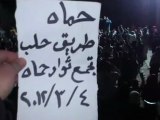 حماه
طريق حلب
تجمع ثوار حماه
٢٠١٢/٢/٤